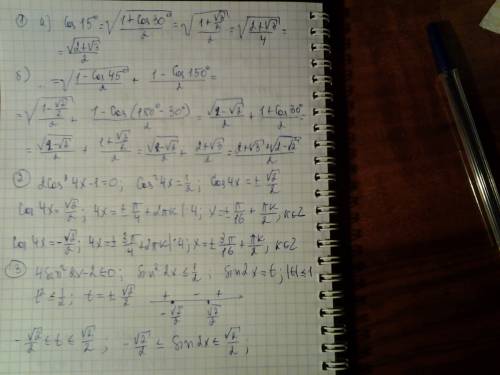 ① а) Cos 15° = √((1+Cos30°)/2) = √((1+√3/2)/2) = √((2+√3)/4) =
= √(2+√3)/2
б) .. = √((1-Cos45°)/2) + (1-Cos150°)/2 =
= √((1-√2/2)/2) + (1-Cos(180°-30°))/2 = √(2-√2)/2 + (1+Cos30°)/2 =
= √(2-√2)/2 + (1+√3/2)/2 = √(2-√2)/2 + (2+√3)/4 =
② 2Cos²4x-1=0; Cos²4x=1/2; Cos4x=±√2/2
Cos4x=√2/2; 4x=±π/4+2πk |:4; x=±π/16+πk/2, k∈Z
Cos4x=-√2/2; 4x=±3π/4+2πk |:4; x=±3π/16+πk/2, k∈Z
③ 4Sin²2x-2≤0; Sin²2x≤1/2; Sin2x=t; |t|≤1
t²≤1/2; t=±√2/2
+ - +
-√2/2 √2/2
-√2/2 ≤ t ≤ √2/2; -√2/2 ≤ Sin2x ≤ √2/2;